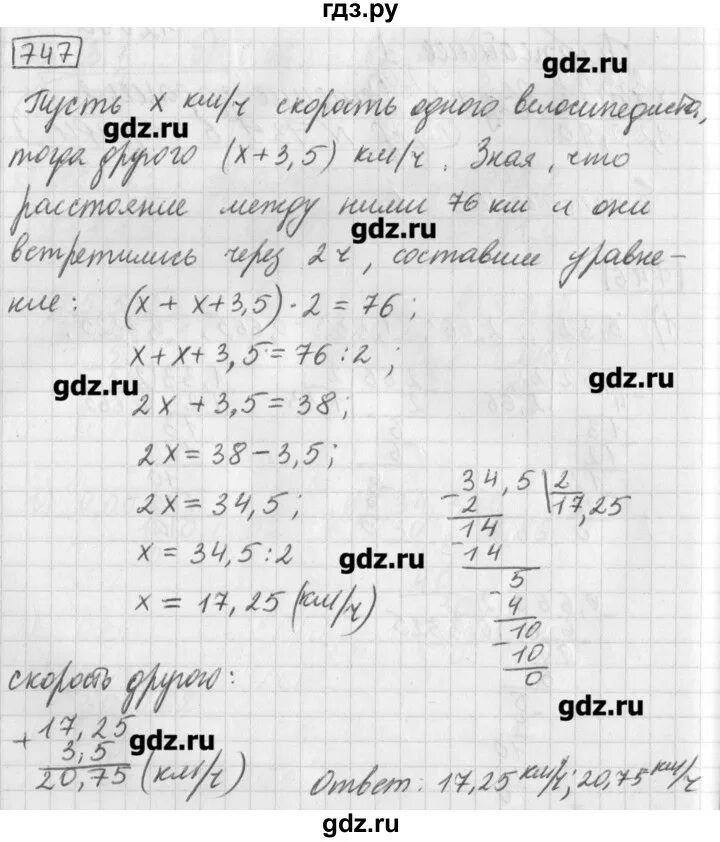 гдз.ру
747
gdz.ru
Пусть х км/ч скорость одного велосипедиста,
gdz.ru
тогда другого (х+3,5) км/ч. Зная, что
расстояние между ними 76 км и они
gdz.ru
встретились через 2 ч, составим уравне-
ние: (х + х+3,5)·2 = 76;
х+х+3,5=76:2;
gdz.ru
gdz.ru
2х+3,5=38;
2х=38-3,5;
2х=34,5;
х=34,5:2
gdz.ru
х = 17,25 (км/ч)
34,5 2
- 2 17,25
14
- 14
5
- 4
10
- 10
0
скорость другого:
gdz.ru
+ 17,25
3,5
gdz.ru
20,75 (км/ч)
Ответ: 17,25 км/ч; 20,75 км/ч
gdz.ru